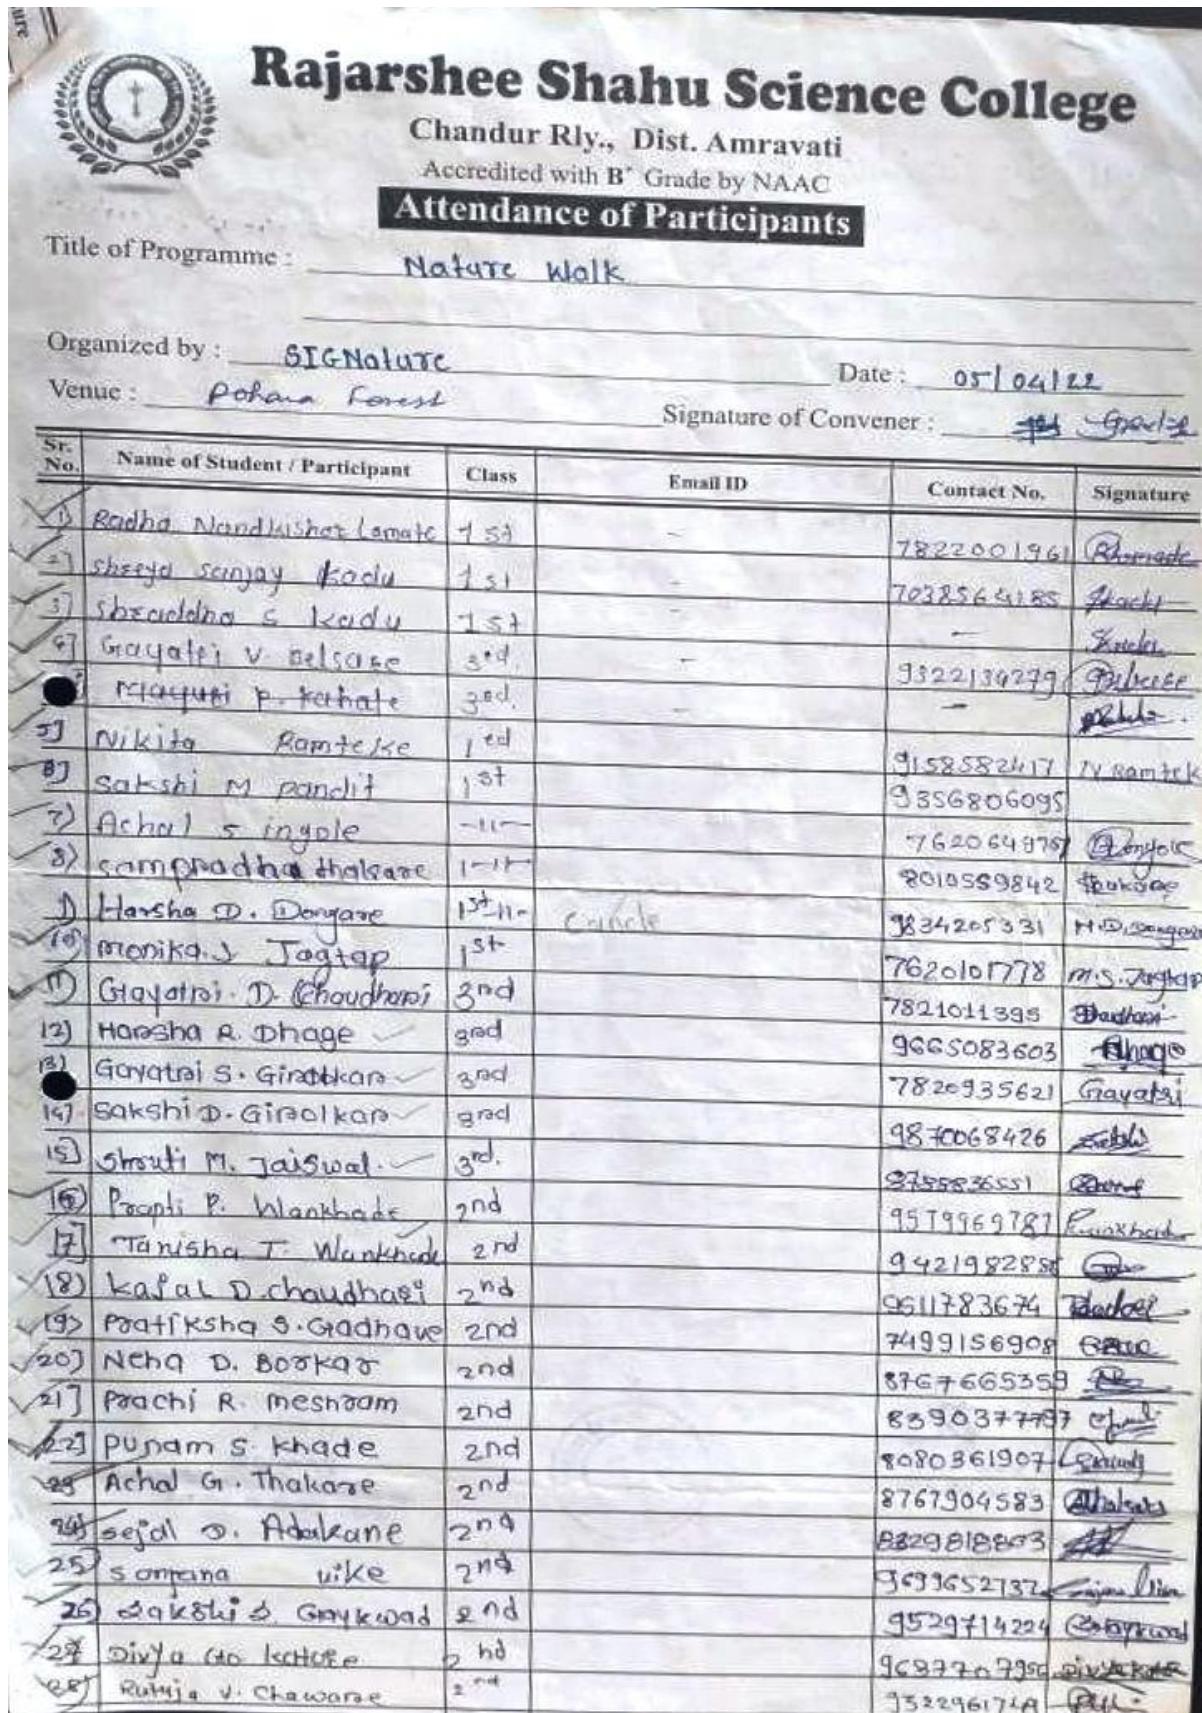 Rajarshee Shahu Science College
Chandur Rly., Dist. Amravati
Accredited with B+ Grade by NAAC
Attendance of Participants
Title of Programme : Nature Walk
Organized by : SIGNature Date : 05/04/22
Venue : Pohara Forest Signature of Convener :
Sr. No. Name of Student / Participant Class Email ID Contact No. Signature
1) Radha Nandkishor Lamate 1st - 7822001961
2] Shreya Sanjay Kadu 1st - 7038564185
3] Shraddha S Kadu 1st -
4] Gayatri V. Belsare 3rd. - 9322134279
Mayuri P. Kahate 3rd. - -
5] Nikita Ramteke 1ed 9158582417 N Ramtek
6] Sakshi M pandit 1st 9356806095
7) Achal S ingole -11- 7620649757
8) Sampradha thakare 1-11- 8010559842
9) Harsha D. Dongare 1st-11- cancle 9834205331 H.D.Dongare
10) monika.S Jagtap 1st 7620101778 M.S.Jagtap
11) Gayatri. D. Choudhari 3nd 7821011395
12) Harsha R. Dhage 3rd 9665083603 Dhage
13) Gayatri S. Giralkar 3rd 7820935621 Gayatri
14) Sakshi D. Girolkar 3rd 9870068426
15] Shruti M. Jaiswal. 3rd.
16) Prapti P. Wankhade 2nd 9579969787
17] Tanisha T. Wankhade 2nd
18) Kajal D. chaudhari 2nd 9611783674
19) Pratiksha S. Gadhave 2nd 7499156908
20] Neha D. Borkar 2nd 8767665359
21] Prachi R. meshram 2nd
22] Punam S. Khade 2nd 8080361907
23 Achal G. Thakare 2nd 8767904583
24) Sejal D. Adakane 2nd
25) Sanjana uike 2nd 9699652732
26) Sakshi S. Gaykwad 2nd 9529714224
27 Divya 2nd
28) Rutuja V. Chaware 2nd